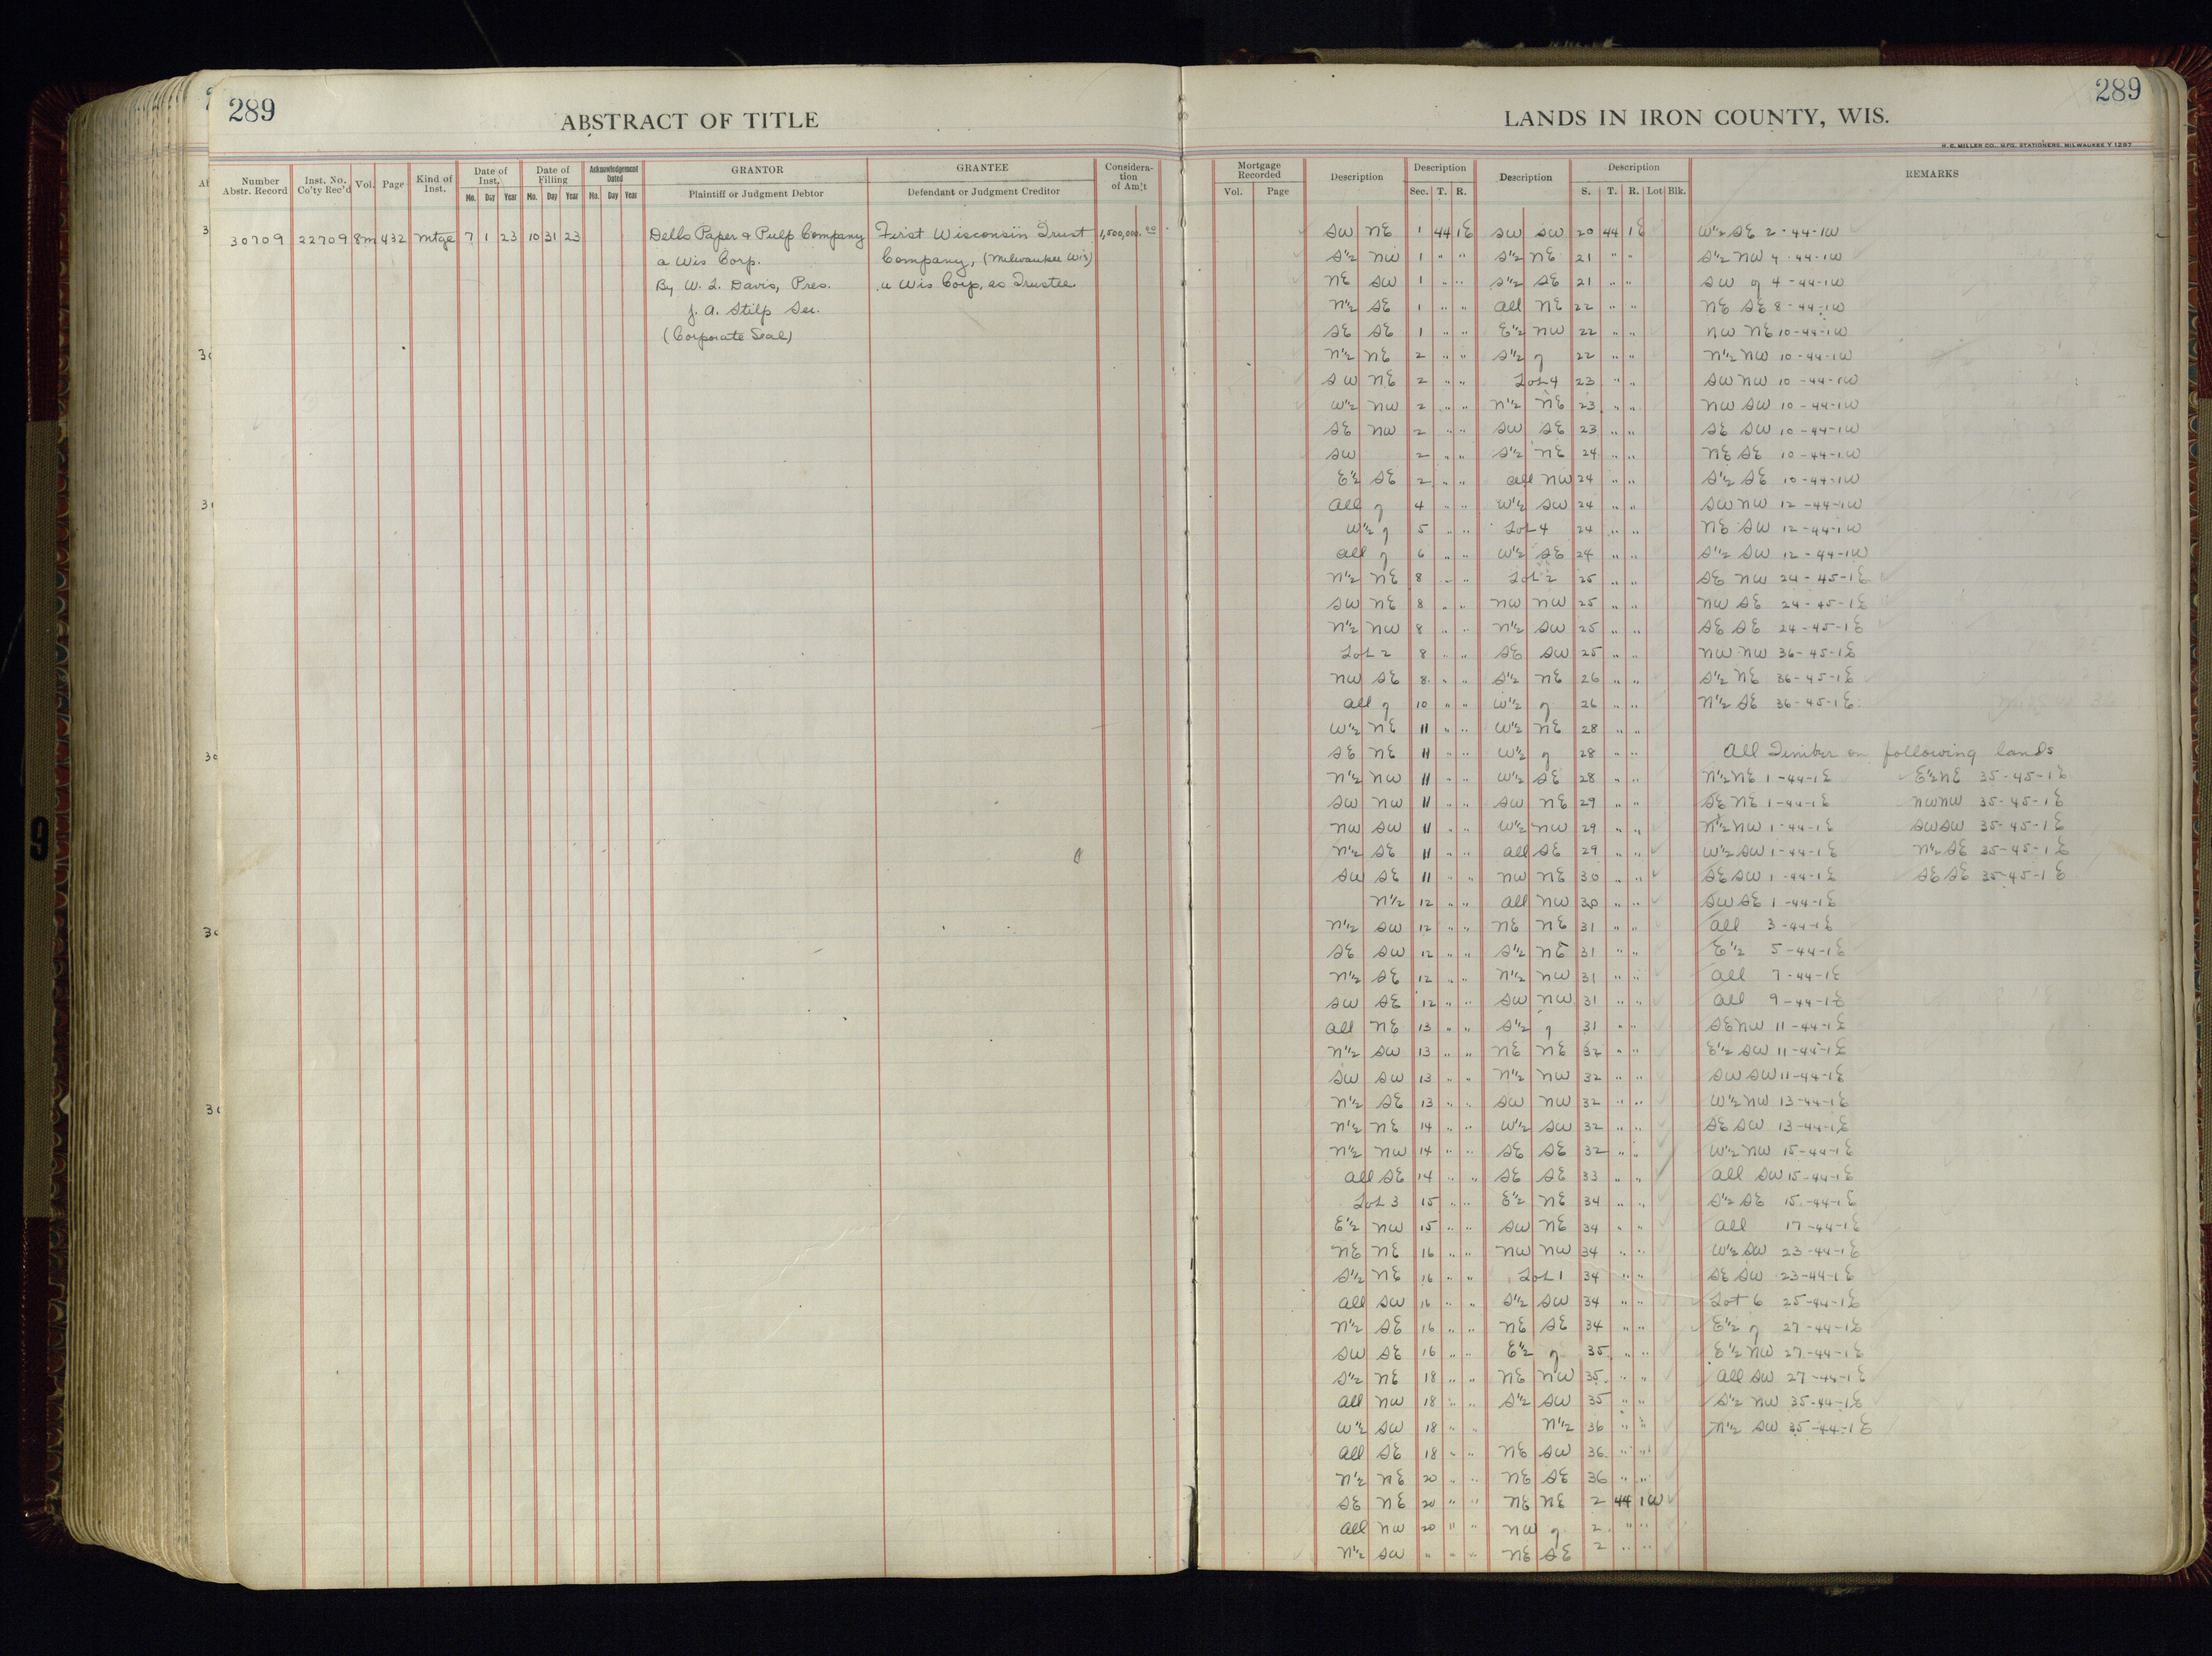 289
ABSTRACT OF TITLE
Number Abstr. Record
Inst. No. Co'ty Rec'd
Vol.
Page
Kind of Inst.
Date of Inst.
Mo. Day Year
Date of Filling
Mo. Day Year
Acknowledgement Dated
Mo. Day Year
GRANTOR
Plaintiff or Judgment Debtor
GRANTEE
Defendant or Judgment Creditor
Considera-tion of Am't
30709 22709 8m 432 Mtge 7 1 23 10 31 23 Dells Paper & Pulp Company First Wisconsin Trust 1,500,000.00
a Wis Corp. Company, (Milwaukee Wis)
By W. L. Davis, Pres. a Wis Corp, as Trustee.
J. A. Stilp Sec.
(Corporate Seal)
289
LANDS IN IRON COUNTY, WIS.
H. C. MILLER CO., MFG. STATIONERS, MILWAUKEE Y 1287
Mortgage Recorded
Vol. Page
Description
Description
Sec. T. R.
Description
Description
S. T. R. Lot Blk.
REMARKS
SW NE 1 44 1E SW SW 20 44 1E W½ SE 2-44-1W
S½ NW 1 " " S½ NE 21 " " S½ NW 4-44-1W
NE SW 1 " " S½ SE 21 " " SW of 4-44-1W
N½ SE 1 " " All NE 22 " " NE SE 8-44-1W
SE SE 1 " " E½ NW 22 " " NW NE 10-44-1W
N½ NE 2 " " S½ of 22 " " N½ NW 10-44-1W
SW NE 2 " " Lot 4 23 " " SW NW 10-44-1W
W½ NW 2 " " N½ NE 23 " " NW SW 10-44-1W
SE NW 2 " " SW SE 23 " " SE SW 10-44-1W
SW 2 " " S½ NE 24 " " NE SE 10-44-1W
E½ SE 2 " " All NW 24 " " S½ SE 10-44-1W
All of 4 " " W½ SW 24 " " SW NW 12-44-1W
W½ of 5 " " Lot 4 24 " " NE SW 12-44-1W
All of 6 " " W½ SE 24 " " S½ SW 12-44-1W
N½ NE 8 " " Lot 2 25 " " SE NW 24-45-1E
SW NE 8 " " NW NW 25 " " NW SE 24-45-1E
N½ NW 8 " " N½ SW 25 " " SE SE 24-45-1E
Lot 2 8 " " SE SW 25 " " NW NW 36-45-1E
NW SE 8 " " S½ NE 26 " " S½ NE 36-45-1E
All of 10 " " W½ of 26 " " N½ SE 36-45-1E
W½ NE 11 " " W½ NE 28 " "
SE NE 11 " " W½ of 28 " " All Timber on following lands
N½ NW 11 " " W½ SE 28 " " N½ NE 1-44-1E E½ NE 35-45-1E
SW NW 11 " " SW NE 29 " " SE NE 1-44-1E NW NW 35-45-1E
NW SW 11 " " W½ NW 29 " " N½ NW 1-44-1E SW SW 35-45-1E
N½ SE 11 " " All SE 29 " " W½ SW 1-44-1E N½ SE 35-45-1E
SW SE 11 " " NW NE 30 " " SE SW 1-44-1E SE SE 35-45-1E
N½ 12 " " All NW 30 " " SW SE 1-44-1E
N½ SW 12 " " NE NE 31 " " All 3-44-1E
SE SW 12 " " S½ NE 31 " " E½ 5-44-1E
N½ SE 12 " " N½ NW 31 " " All 7-44-1E
SW SE 12 " " SW NW 31 " " All 9-44-1E
All NE 13 " " S½ of 31 " " SE NW 11-44-1E
N½ SW 13 " " NE NE 32 " " E½ SW 11-44-1E
SW SW 13 " " N½ NW 32 " " SW SW 11-44-1E
N½ SE 13 " " SW NW 32 " " W½ NW 13-44-1E
N½ NE 14 " " W½ SW 32 " " SE SW 13-44-1E
N½ NW 14 " " SE SE 32 " " W½ NW 15-44-1E
All SE 14 " " SE SE 33 " " All SW 15-44-1E
Lot 3 15 " " E½ NE 34 " " S½ SE 15-44-1E
E½ NW 15 " " SW NE 34 " " All 17-44-1E
NE NE 16 " " NW NW 34 " " W½ SW 23-44-1E
S½ NE 16 " " Lot 1 34 " " SE SW 23-44-1E
All SW 16 " " S½ SW 34 " " Lot 6 25-44-1E
N½ SE 16 " " NE SE 34 " " E½ of 27-44-1E
SW SE 16 " " E½ of 35 " " E½ NW 27-44-1E
S½ NE 18 " " NE NW 35 " " All SW 27-44-1E
All NW 18 " " S½ SW 35 " " S½ NW 35-44-1E
W½ SW 18 " " N½ 36 " " N½ SW 35-44-1E
All SE 18 " " NE SW 36 " "
N½ NE 20 " " NE SE 36 " "
SE NE 20 " " NE NE 2 44 1W
All NW 20 " " NW of 2 " "
N½ SW " " " NE SE 2 " "